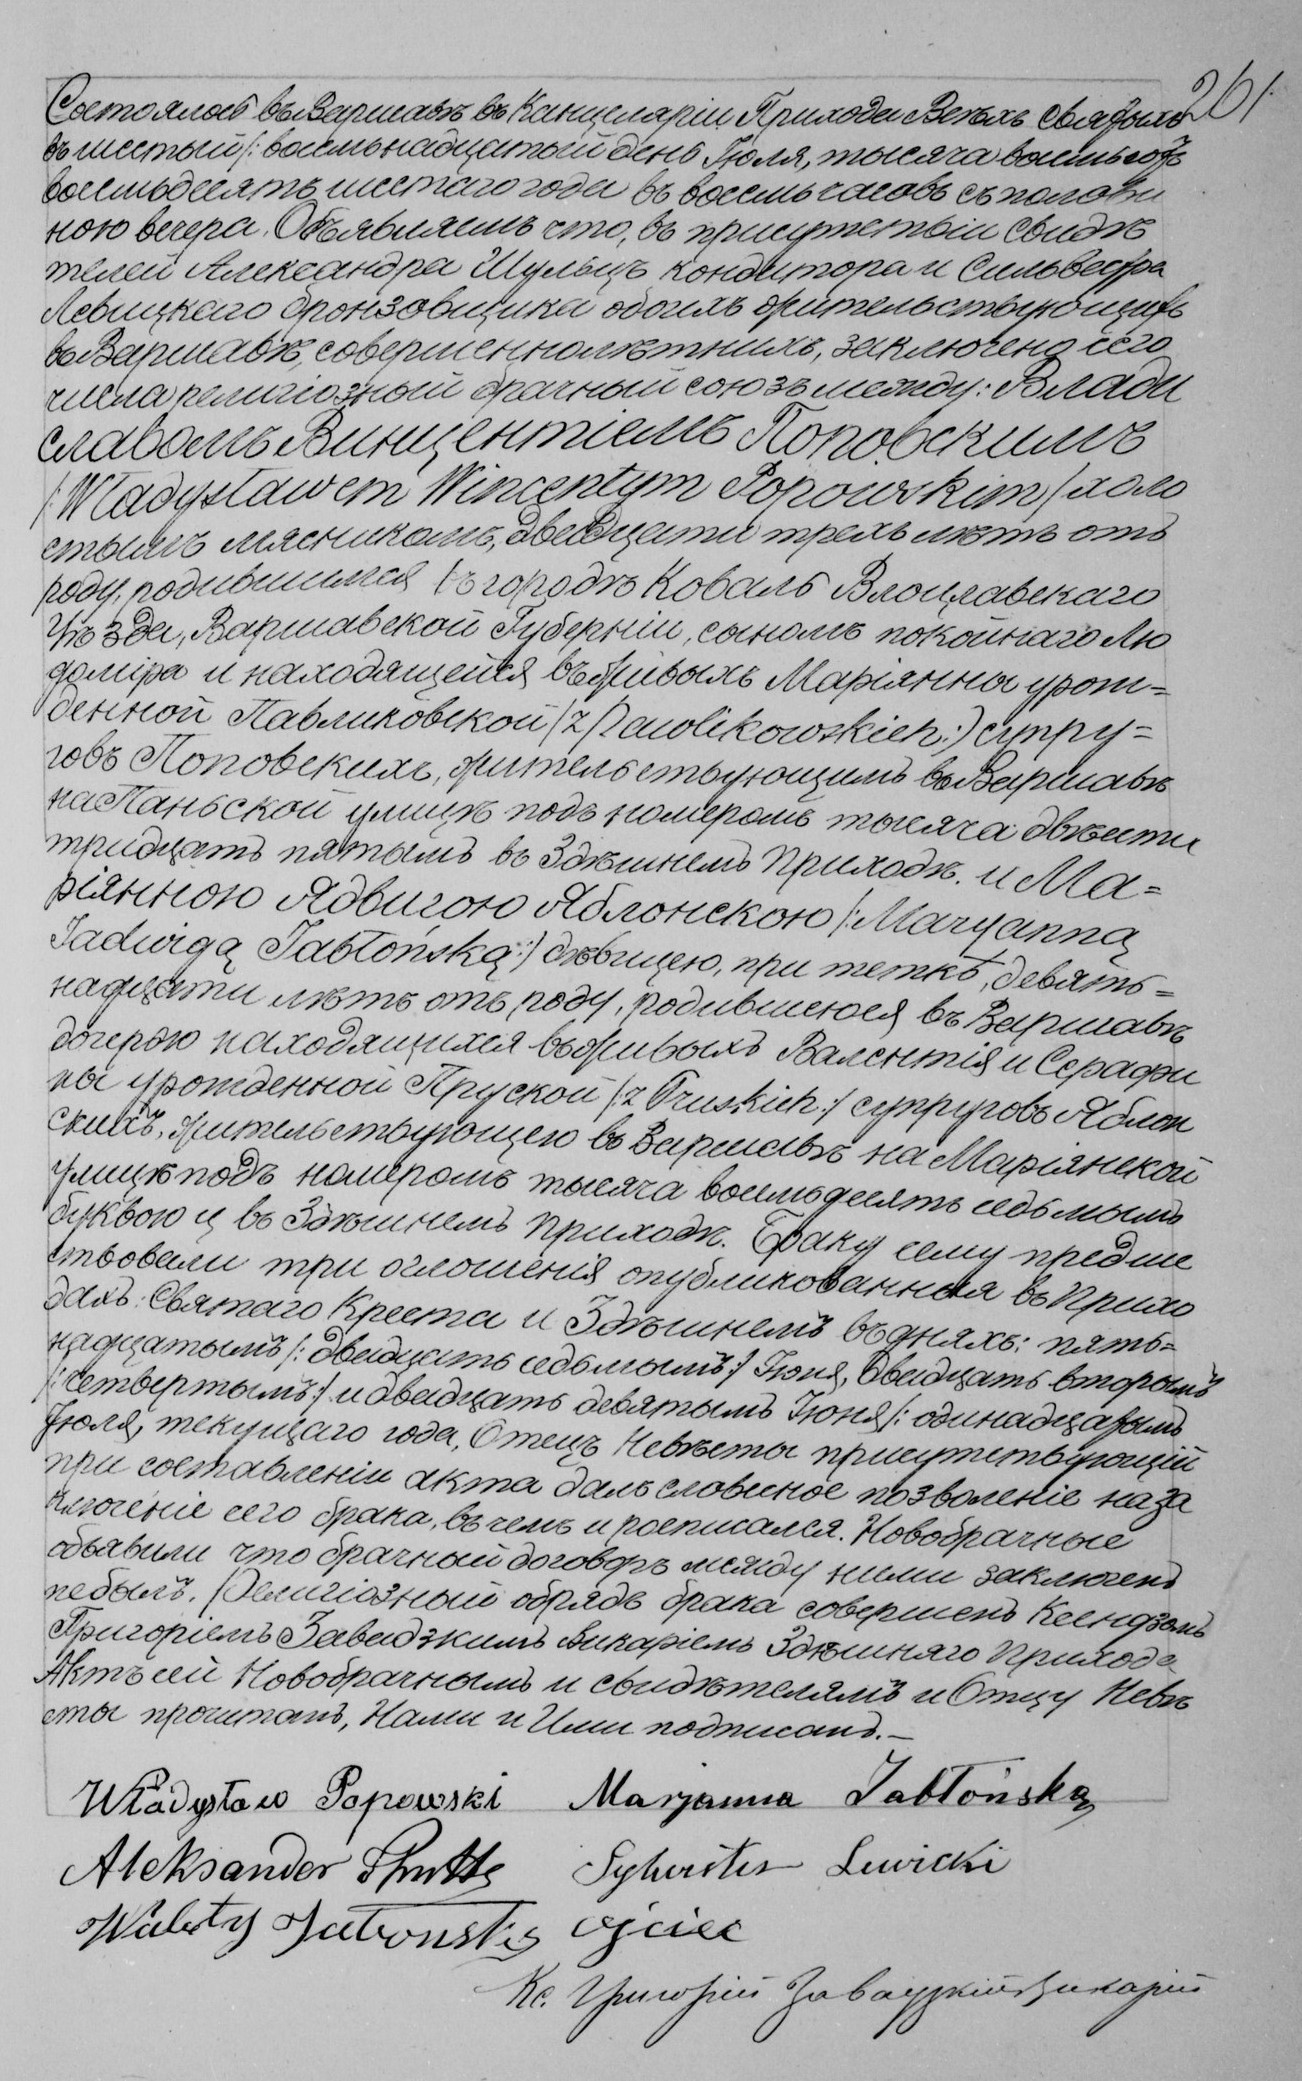 261.
Состоялось въ Варшавѣ въ Канцеляріи Прихода Всѣхъ Святыхъ
въ шестый /: восемьнадцатый день Іюля, тысяча восемьсотъ
восемьдесятъ шестаго года въ восемь часовъ съ полови
ною вечера. Объявляемъ что, въ присутствіи свидѣ
телей Александра Шульцъ кондитора и Сильвестра
Левицкаго бронзовщика обоихъ жительствующихъ
въ Варшавѣ, совершеннолѣтнихъ, заключено сего
числа религіозный брачный союзъ между: Влади
славомъ Винцентіемъ Поповскимъ
/:Władysławem Wincentym Popowskim/ холо
стымъ мясникомъ, двадцати трехъ лѣтъ отъ
роду, родившимся въ городѣ Коваль Влоцлавскаго
Уѣзда, Варшавской Губерніи, сыномъ покойнаго Лю
доміра и находящейся въ живыхъ Маріянны урож=
денной Павликовской /z Pawlikowskich:/ супру=
говъ Поповскихъ, жительствующимъ въ Варшавѣ
на Паньской улицѣ подъ номеромъ тысяча двѣсти
тридцать пятымъ въ Здѣшнемъ Приходѣ. и Ма=
ріянною Ядвигою Яблонскою /:Maryanną
Jadwigą Jabłońską:/ дѣвицею, при теткѣ, девять=
надцати лѣтъ отъ роду, родившеюся въ Варшавѣ
дочерью находящихся въ живыхъ Валентія и Серафи
ны урожденной Пруской /:z Pruskich:/ супруговъ Яблон
скихъ, жительствующею въ Варшавѣ на Маріянской
улицѣ подъ номеромъ тысяча восемьдесятъ седьмымъ
буквою ц въ Здѣшнемъ Приходѣ. Браку сему предше
ствовали три оглошенія опубликованныя въ Прихо
дахъ: Святаго Креста и Здѣшнемъ въ дняхъ: пять=
надцатымъ /: двадцать седьмымъ:/ Іюня, двадцать вторымъ
/:четвертымъ:/ и двадцать девятымъ Іюня /: одинадцатымъ
Іюля, текущаго года, Отецъ Невѣсты присутствующій
при составленіи акта далъ словесное позволеніе на за
ключеніе сего брака, въ чемъ и росписался. Новобрачные
объявили что брачный договоръ между ними заключенъ
небылъ. Религіозный обрядъ брака совершенъ Ксендзомъ
Григоріемъ Завадзкимъ Викаріемъ Здѣшняго Прихода
Актъ сей Новобрачнымъ и свидѣтелямъ и Отцу Невѣ
сты прочитанъ, Нами и Ими подписанъ.—
Władysław Popowski Marjanna Jabłońska
Aleksander Sylwester Lewicki
Walenty Jabłonski ojciec
Кс. Григорій Завадзкій Викарій